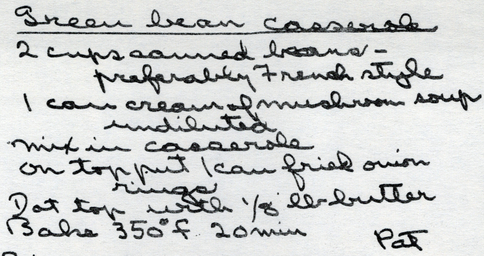 Green bean casserole
2 cups canned beans -
preferably French style
1 can cream of mushroom soup
undiluted
mix in casserole
on top put 1 can fried onion
rings
Dot top with 1/8 lb butter
Bake 350°f 20 min
Pat